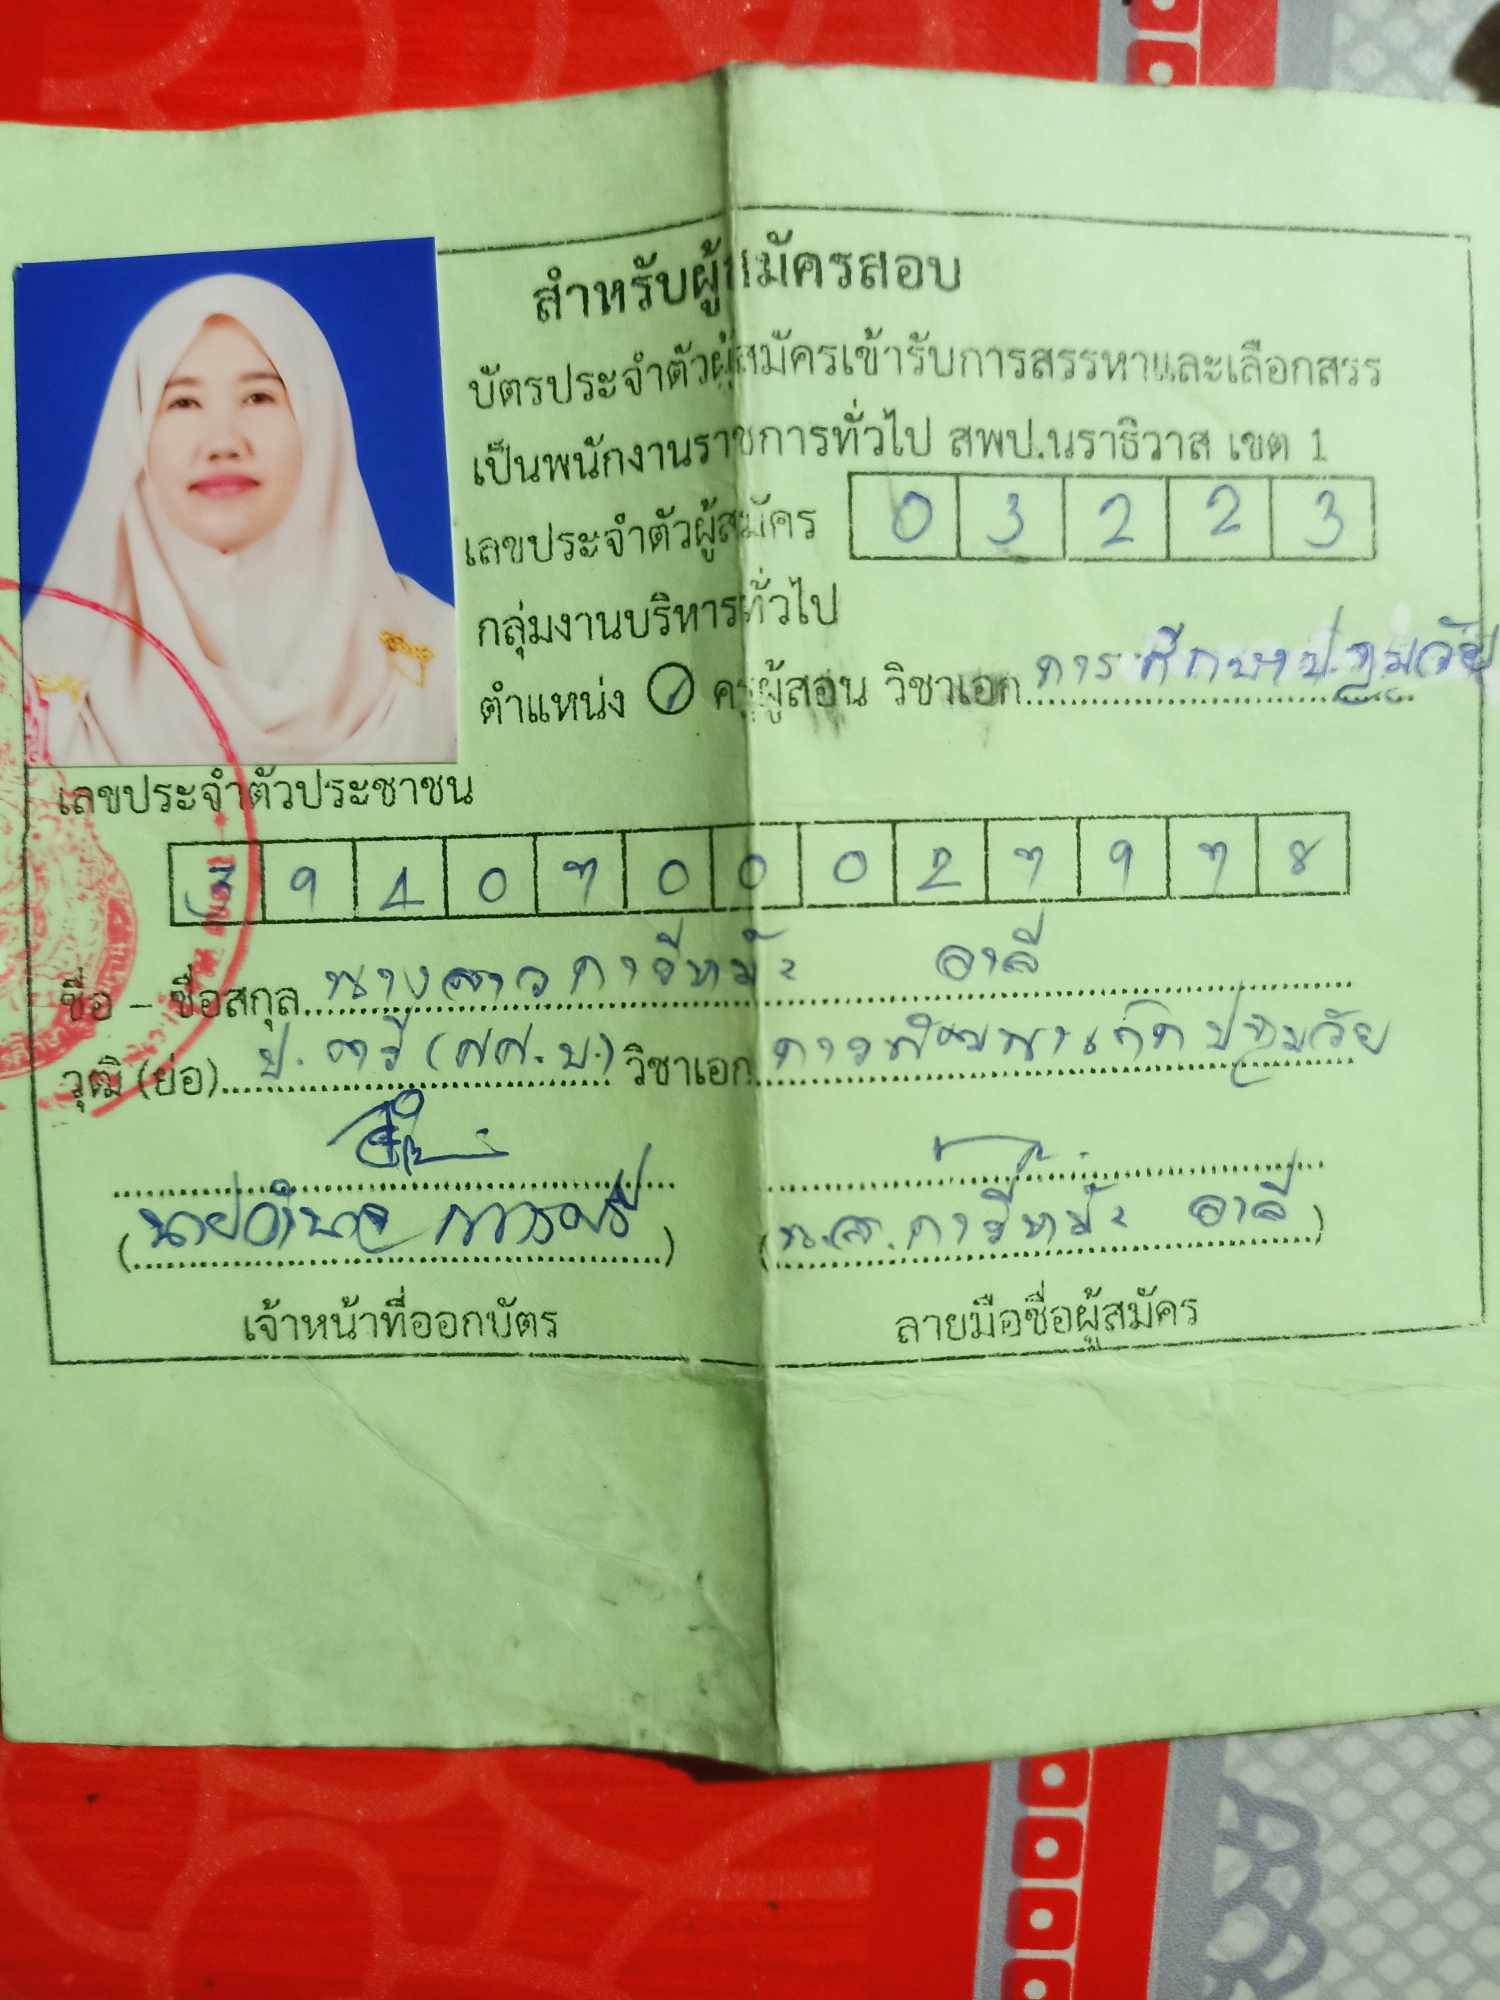 สำหรับผู้สมัครสอบ
บัตรประจำตัวผู้สมัครเข้ารับการสรรหาและเลือกสรร
เป็นพนักงานราชการทั่วไป สพป.นราธิวาส เขต 1
เลขประจำตัวผู้สมัคร 0 3 2 2 3
กลุ่มงานบริหารทั่วไป
ตำแหน่ง ครูผู้สอน วิชาเอก การศึกษาปฐมวัย
เลขประจำตัวประชาชน
3 9 4 0 7 0 0 0 2 7 9 7 8
ชื่อ - ชื่อสกุล นางสาวการีหม๊ะ อาลี
วุฒิ (ย่อ) ป.ตรี (ศศ.บ.) วิชาเอก การพัฒนาเด็กปฐมวัย
(นายอำนาจ) (น.ส.การีหม๊ะ อาลี)
เจ้าหน้าที่ออกบัตร ลายมือชื่อผู้สมัคร